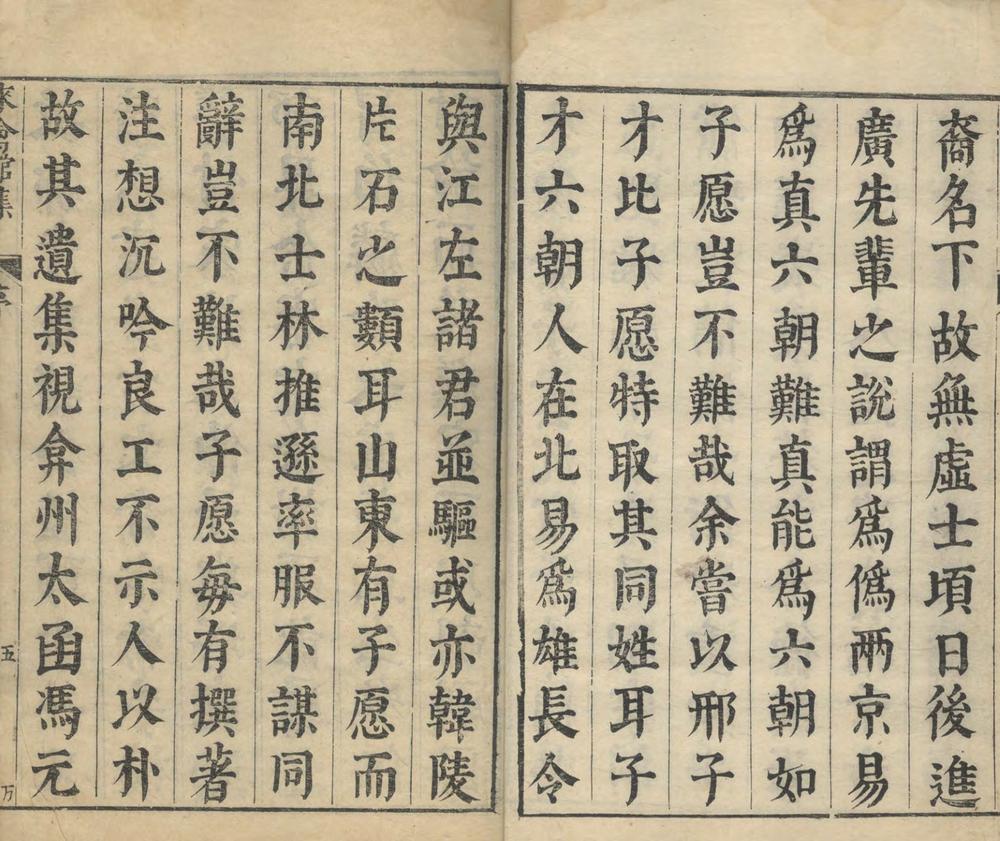 裔名下故無虛士頃日後進
廣先輩之說謂爲僞兩京易
爲真六朝難真能爲六朝如
子愿豈不難哉余嘗以邢子
才比子愿特取其同姓耳子
才六朝人在北易爲雄長令
與江左諸君並驅或亦韓陵
片石之類耳山東有子愿而
南北士林推遜率服不謀同
辭豈不難哉子愿每有撰著
注想沉吟良工不示人以朴
故其遺集視弇州太函馮元
來禽館集
序
五
万